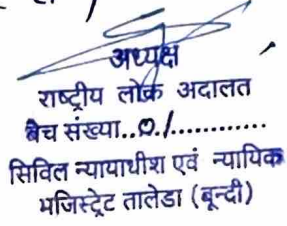 अध्यक्ष
राष्ट्रीय लोक अदालत
बेंच संख्या..01............
सिविल न्यायाधीश एवं न्यायिक
मजिस्ट्रेट तालेडा (बून्दी)